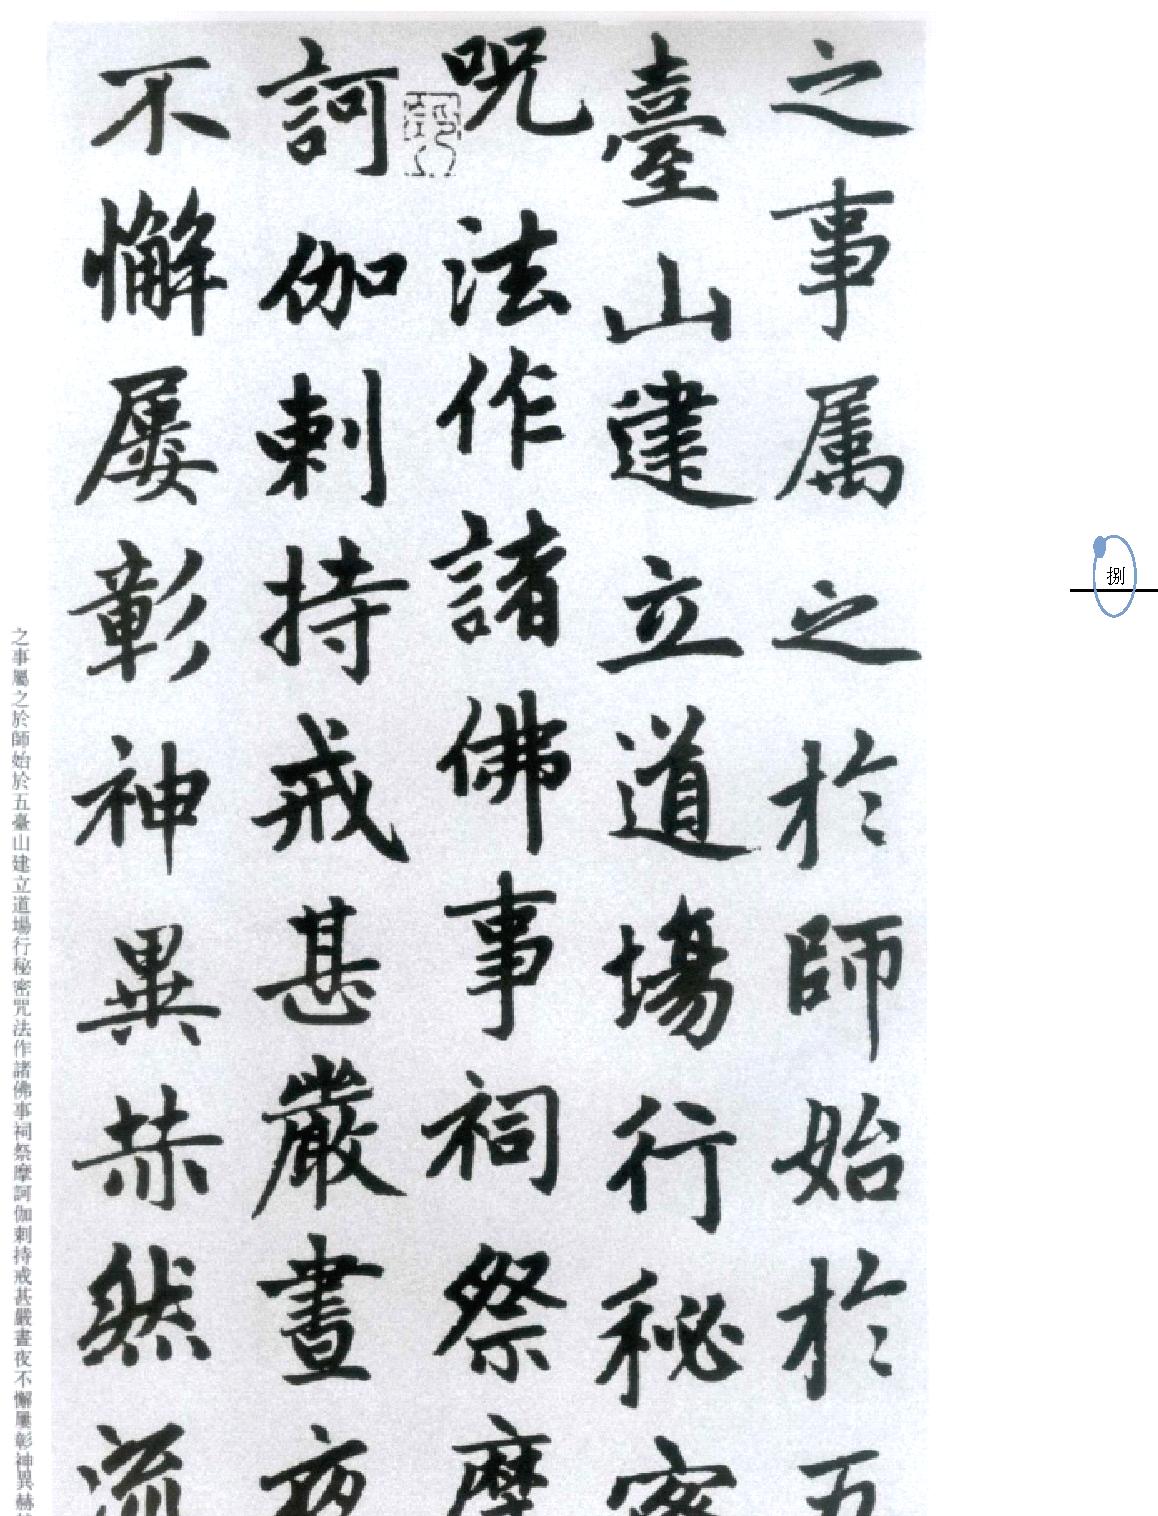 之事属之於師始於五
臺山建立道場行秘密
呪法作諸佛事祠祭摩
訶伽剌持戒甚嚴晝夜
不懈屢彰神異赫然流
捌
之事屬之於師始於五臺山建立道場行秘密咒法作諸佛事祠祭摩訶伽剌持戒甚嚴晝夜不懈屢彰神異赫